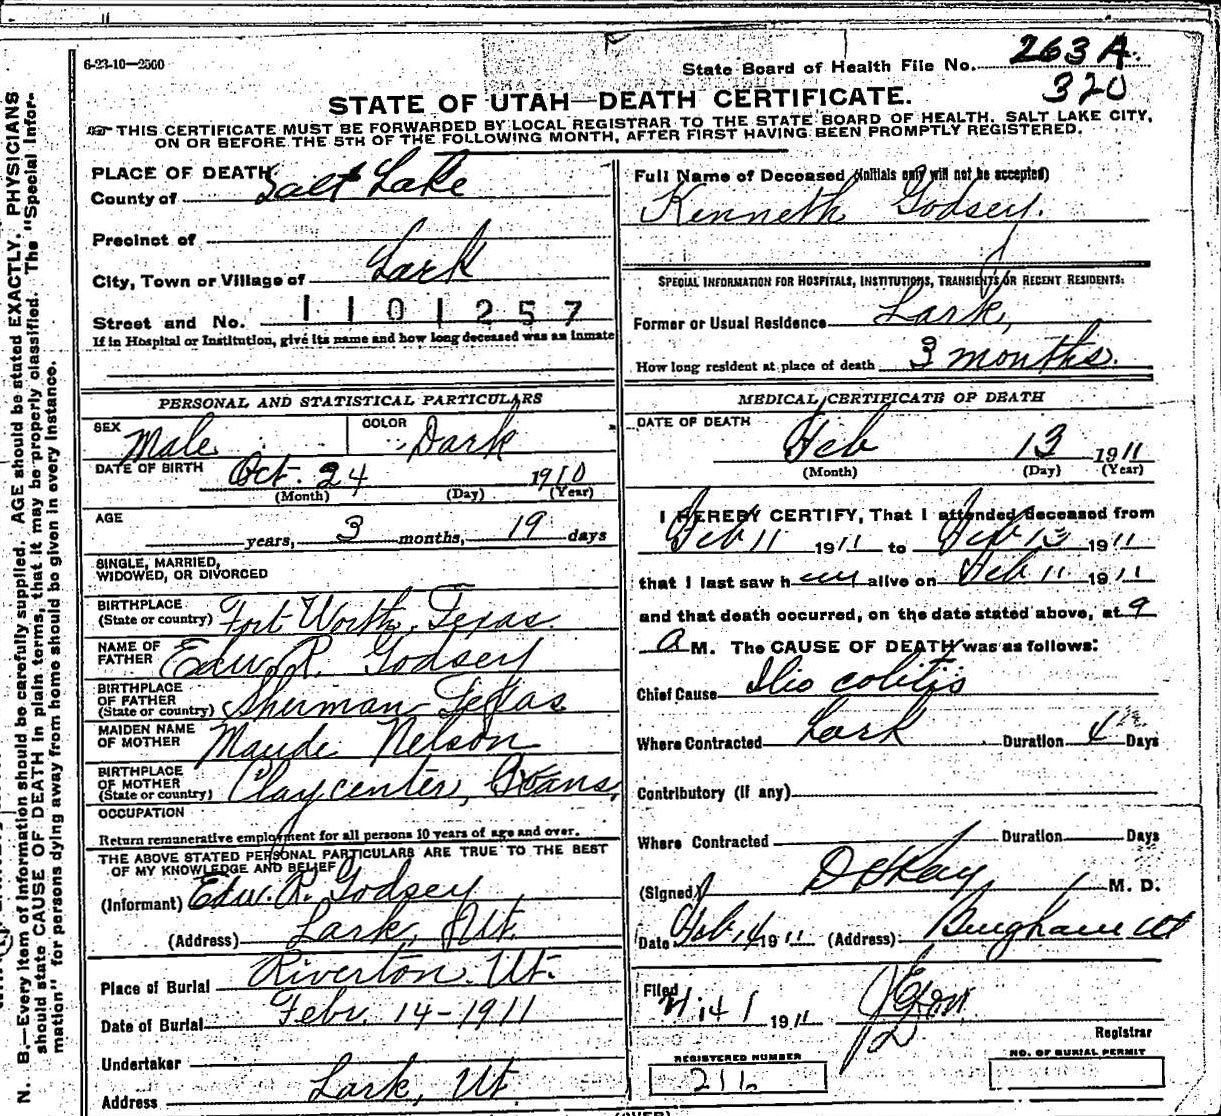 6-23-10—2500
State Board of Health File No. 263 A.
320
STATE OF UTAH—DEATH CERTIFICATE.
THIS CERTIFICATE MUST BE FORWARDED BY LOCAL REGISTRAR TO THE STATE BOARD OF HEALTH, SALT LAKE CITY,
ON OR BEFORE THE 5TH OF THE FOLLOWING MONTH, AFTER FIRST HAVING BEEN PROMPTLY REGISTERED.
PLACE OF DEATH
County of Salt Lake
Precinct of
City, Town or Village of Lark
1101257
Street and No.
If in Hospital or Institution, give its name and how long deceased was an inmate
Full Name of Deceased (Initials only will not be accepted)
Kenneth Godsey.
SPECIAL INFORMATION FOR HOSPITALS, INSTITUTIONS, TRANSIENTS OR RECENT RESIDENTS:
Former or Usual Residence Lark,
How long resident at place of death 3 months.
PERSONAL AND STATISTICAL PARTICULARS
SEX Male COLOR Dark
DATE OF BIRTH Oct. 24 1910
(Month) (Day) (Year)
AGE years, 3 months, 19 days
SINGLE, MARRIED,
WIDOWED, OR DIVORCED
BIRTHPLACE
(State or country) Fort Worth, Texas
NAME OF
FATHER Edw. R. Godsey
BIRTHPLACE
OF FATHER
(State or country) Sherman Texas
MAIDEN NAME
OF MOTHER Maude Nelson
BIRTHPLACE
OF MOTHER
(State or country) Claycenter, Kans.
OCCUPATION
Return remunerative employment for all persons 10 years of age and over.
THE ABOVE STATED PERSONAL PARTICULARS ARE TRUE TO THE BEST
OF MY KNOWLEDGE AND BELIEF
(Informant) Edw. R. Godsey
(Address) Lark, Ut.
Place of Burial Riverton. Ut.
Date of Burial Febr. 14-1911
Undertaker
Address Lark, Ut.
MEDICAL CERTIFICATE OF DEATH
DATE OF DEATH
Feb 13 1911
(Month) (Day) (Year)
I HEREBY CERTIFY, That I attended deceased from
Feb 11 1911 to Feb 13 1911
that I last saw h im alive on Feb 11 1911
and that death occurred, on the date stated above, at 9
A M. The CAUSE OF DEATH was as follows:
Chief Cause Ilio colitis
Where Contracted Lark Duration 4 Days
Contributory (if any)
Where Contracted Duration Days
(Signed) M. D.
Date Feb 14 1911 (Address) Bingham Ut
Filed 14 1911
Registrar
REGISTERED NUMBER
NO. OF BURIAL PERMIT
(OVER)
N. B.—Every item of information should be carefully supplied. AGE should be stated EXACTLY. PHYSICIANS
should state CAUSE OF DEATH in plain terms, that it may be properly classified. The "Special Infor-
mation" for persons dying away from home should be given in every instance.